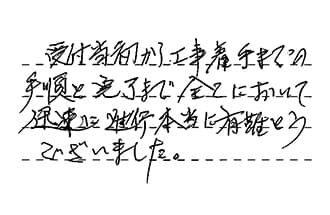 受付当初から工事着手までの
手順と完了まで全てにおいて
迅速に進行本当に有難とう
ございました。